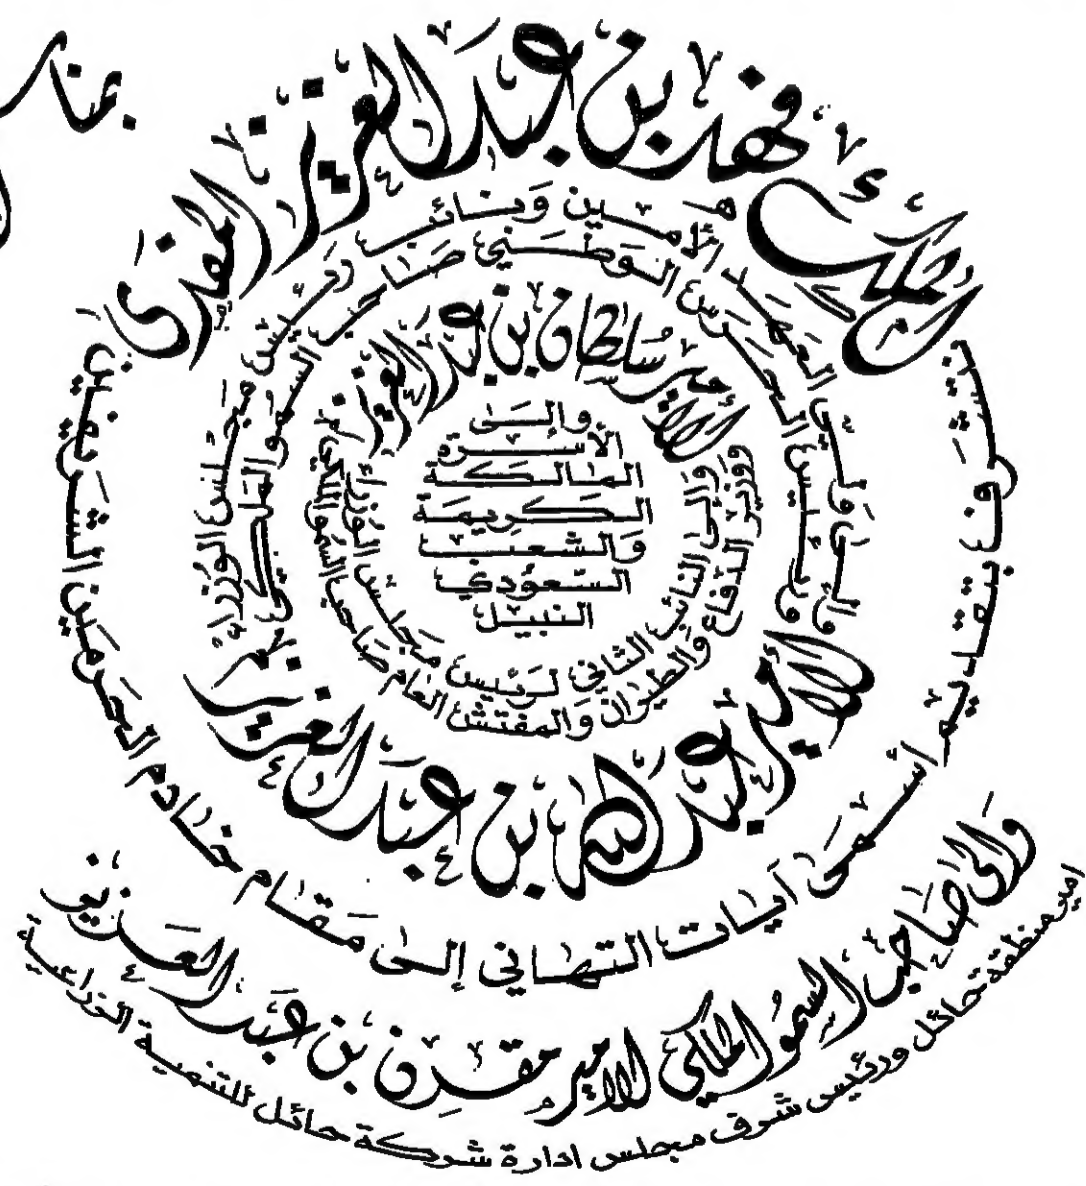 بمنا
تتشرف بتقديم أسمى آيات التهاني إلى مقام خادم الحرمين الشريفين
الملك فهد بن عبدالعزيز المفدى
وإلى ولي العهد الأمين ونائب رئيس مجلس الوزراء
ورئيس الحرس الوطني صاحب السمو الملكي
الأمير عبدالله بن عبدالعزيز
وإلى النائب الثاني لرئيس مجلس الوزراء
ووزير الدفاع والطيران والمفتش العام صاحب السمو الملكي
الأمير سلطان بن عبدالعزيز
وإلى
الأسرة
المالكة
الكريمة
والشعب
السعودي
النبيل
وإلى صاحب السمو الملكي الامير مقرن بن عبد العزيز
امير منطقة حائل ورئيس شرف مجلس ادارة شركة حائل للتنمية الزراعية